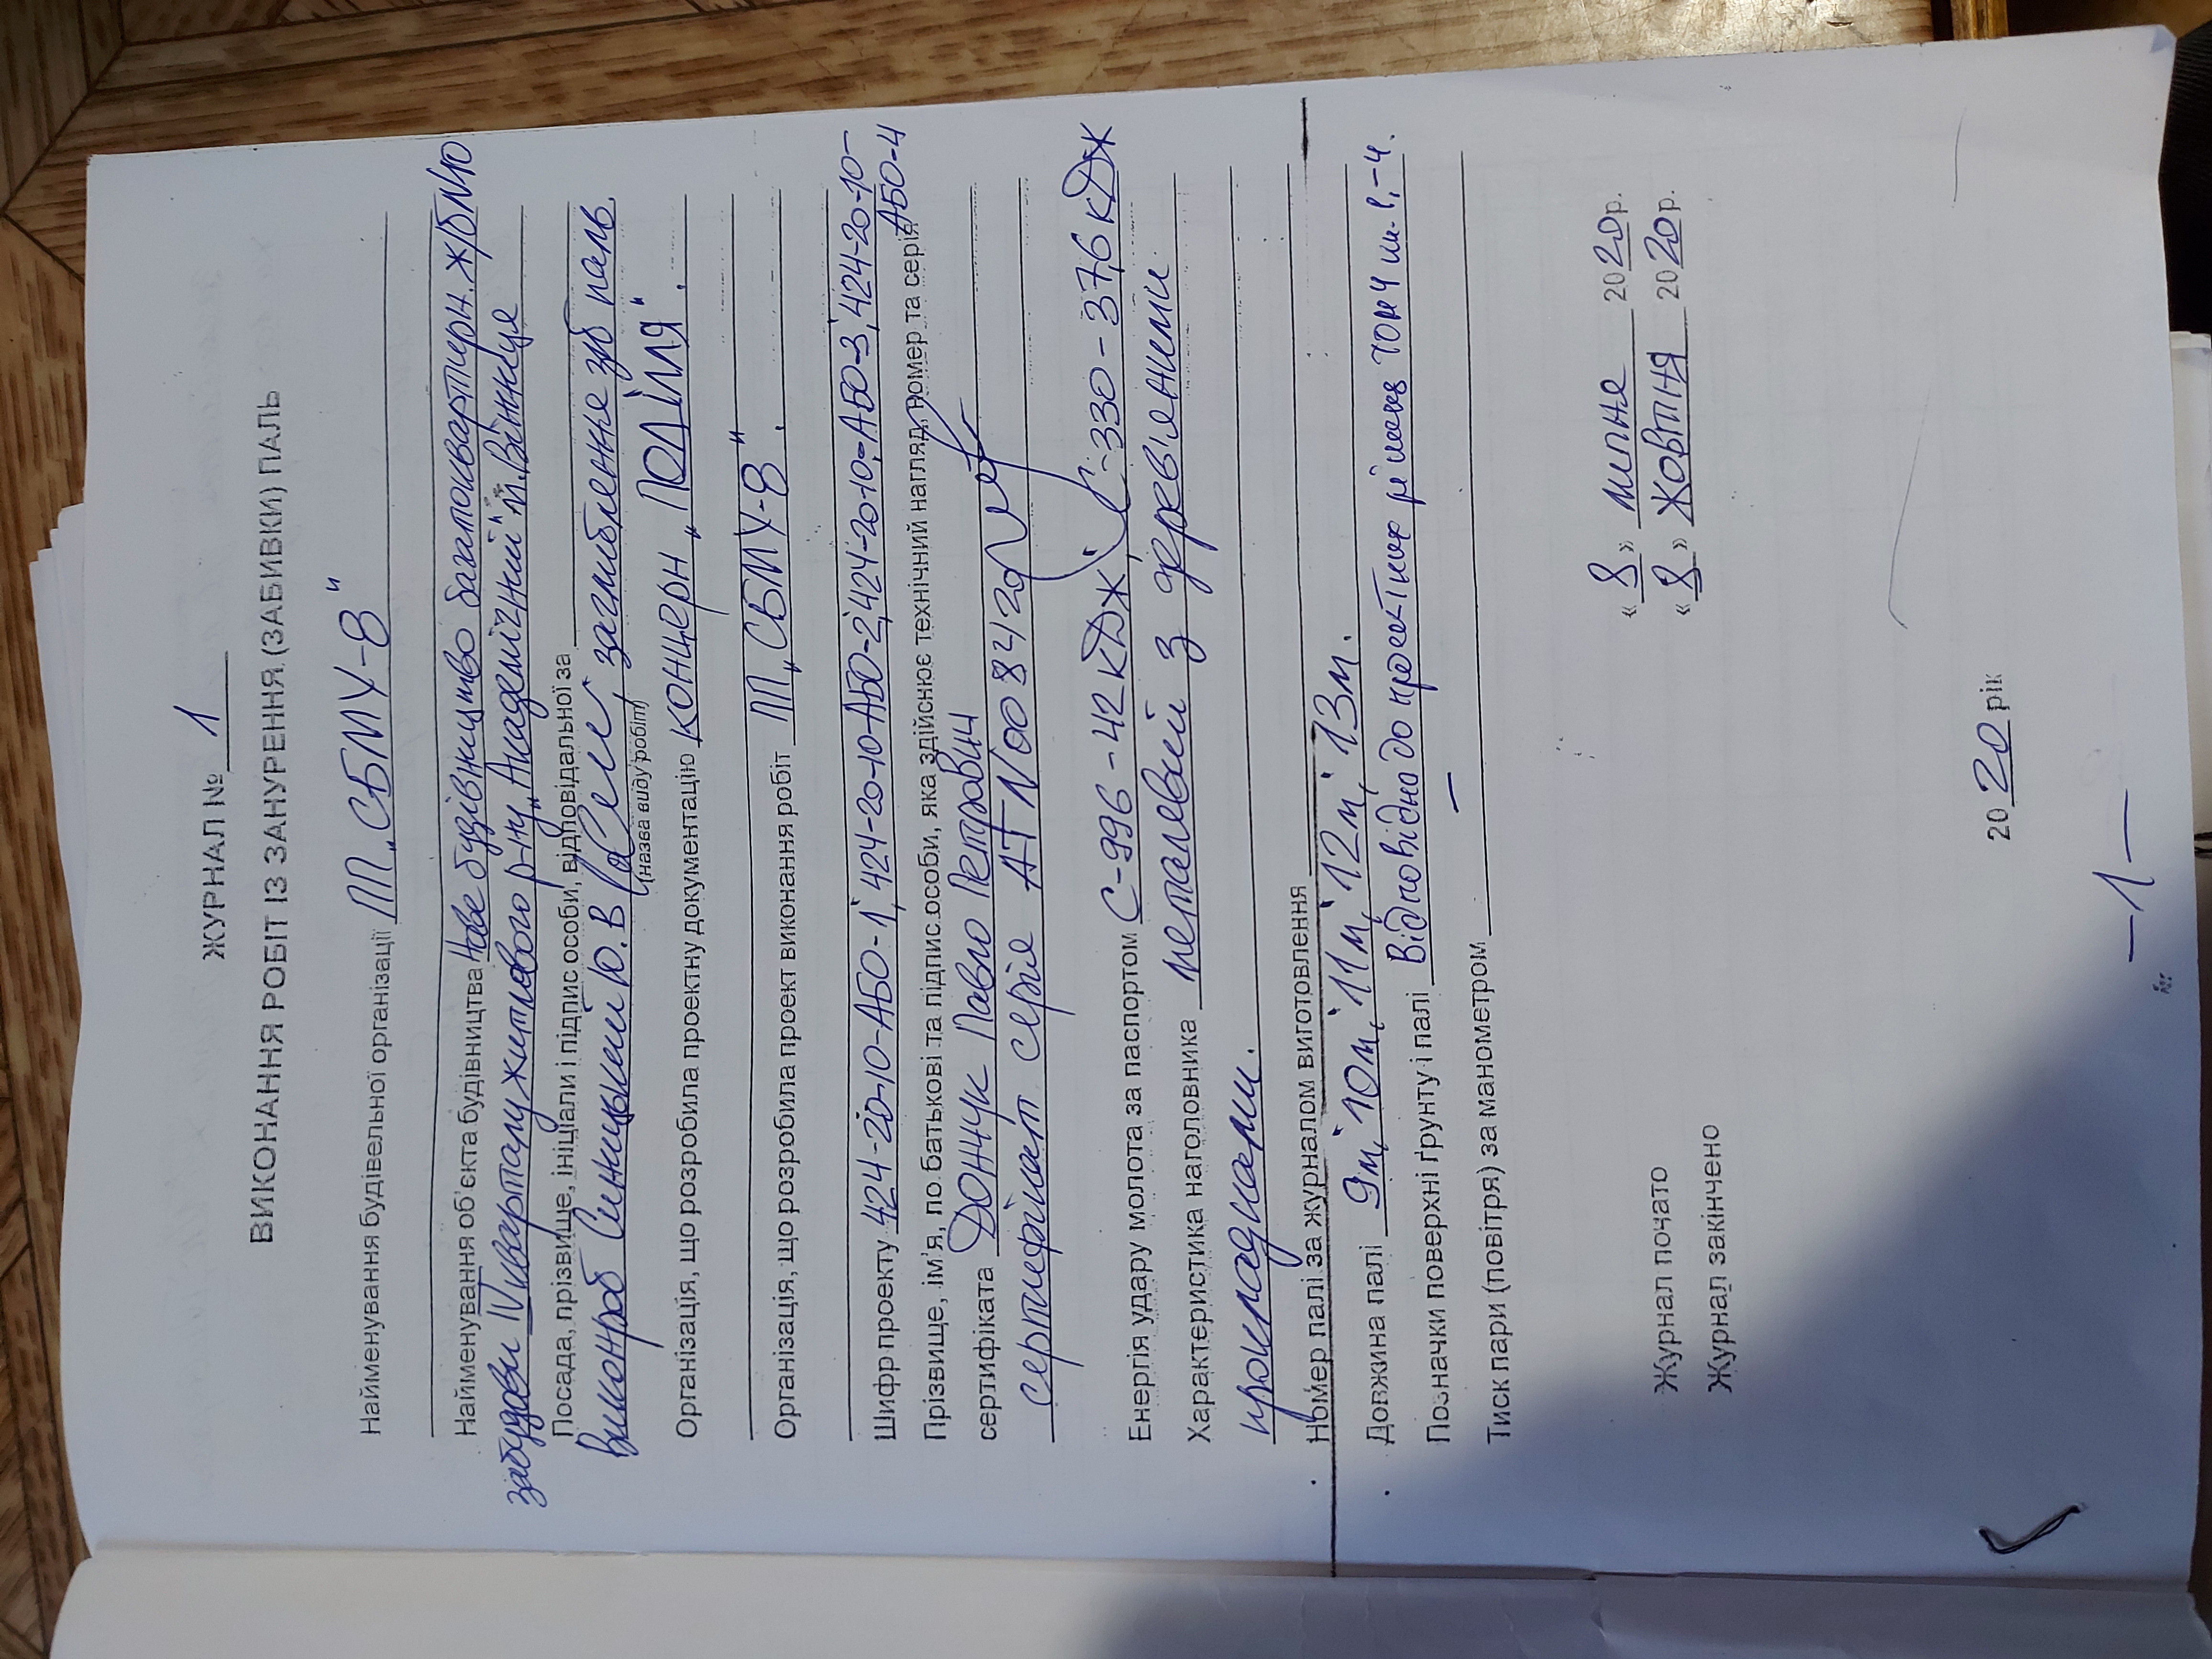 ЖУРНАЛ № 1
ВИКОНАННЯ РОБІТ ІЗ ЗАНУРЕННЯ (ЗАБИВКИ) ПАЛЬ
Найменування будівельної організації ПП „СБМУ-8"
Найменування об'єкта будівництва Нове будівництво багатоквартирн. ж/б №10
забудови IV кварталу житлового р-ну „Академічний" м. Вінниця
Посада, прізвище, ініціали і підпис особи, відповідальної за
виконроб Синицький Ю.В заглиблення з/б паль
(назва виду робіт)
Організація, що розробила проектну документацію концерн „ПОДІЛЛЯ".
Організація, що розробила проект виконання робіт ПП „СБМУ-8".
Шифр проекту 424-20-10-АБО-1, 424-20-10-АБО-2, 424-20-10-АБО-3, 424-20-10-
АБО-4
Прізвище, ім'я, по батькові та підпис особи, яка здійснює технічний нагляд, номер та серія
сертифіката Дончук Павло Петрович
сертифікат серія АТ №008420
Енергія удару молота за паспортом С-996-42кДж, С-330-37,6кДж
Характеристика наголовника металевий з дерев'яними
прокладками.
Номер палі за журналом виготовлення
Довжина палі 9м, 10м, 11м, 12м, 13м.
Позначки поверхні ґрунту і палі Відповідно до проектних рішень
Тиск пари (повітря) за манометром —
Журнал почато «8» липня 2020р.
Журнал закінчено «8» жовтня 2020р.
2020 рік
—1—